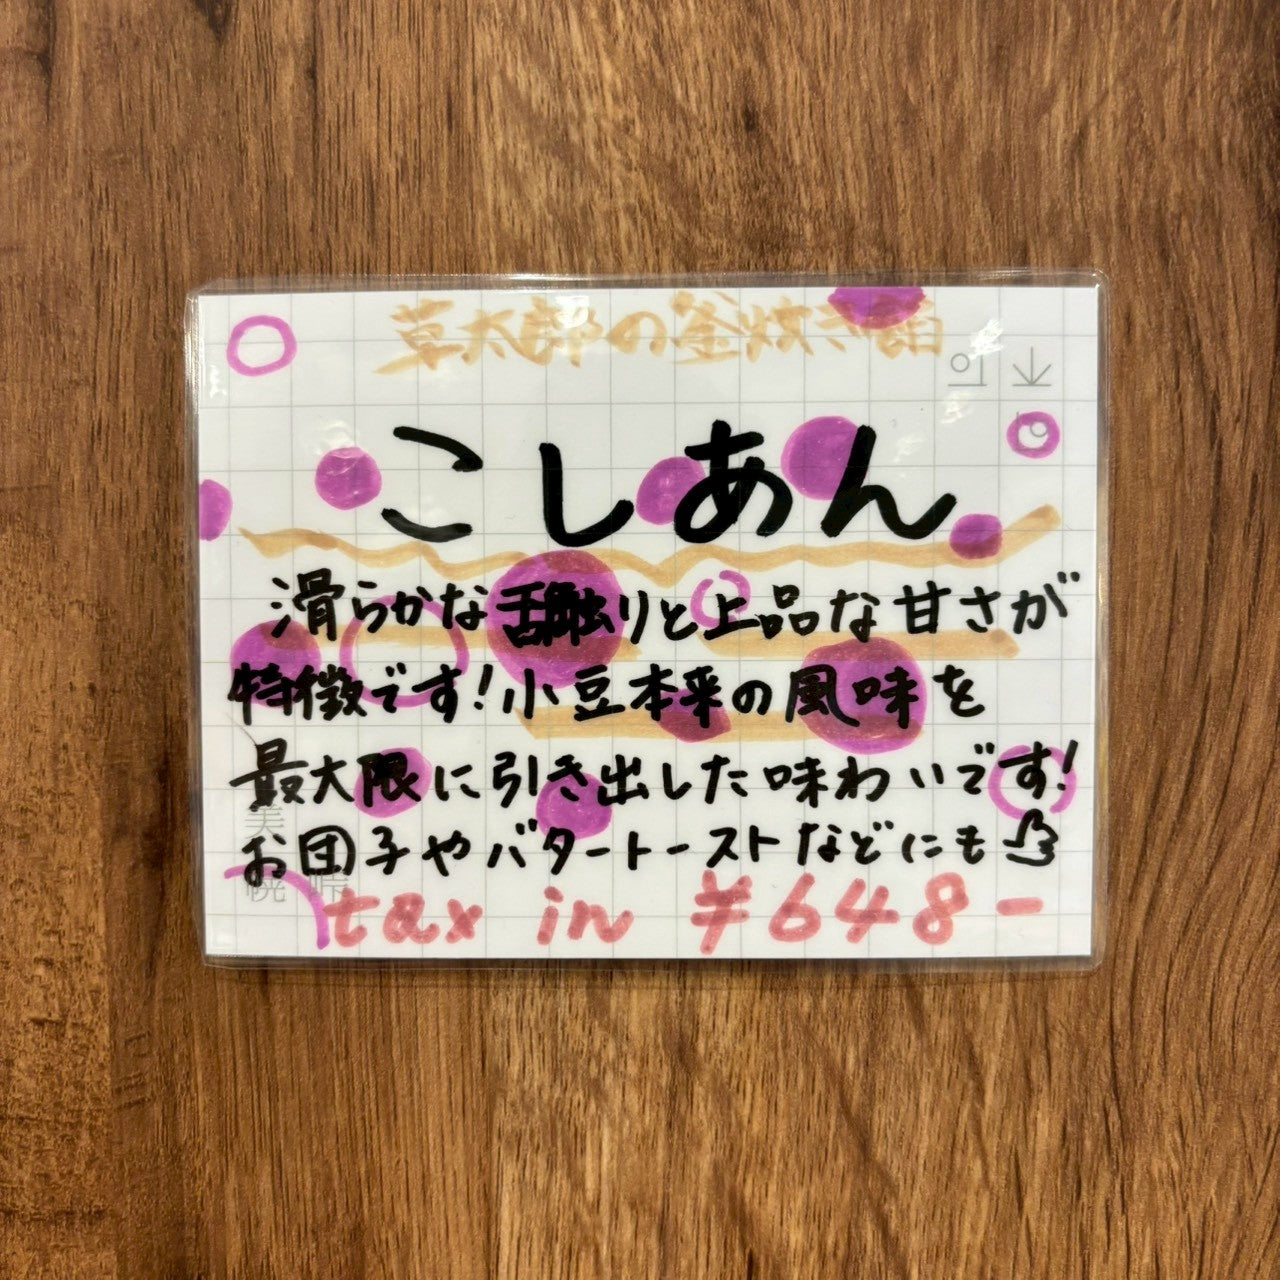 草太郎の釜炊き餡
こしあん
滑らかな舌触りと上品な甘さが
特徴です!小豆本来の風味を
最大限に引き出した味わいです!
お団子やバタートーストなどにも
tax in ¥648-
美
幌 峠